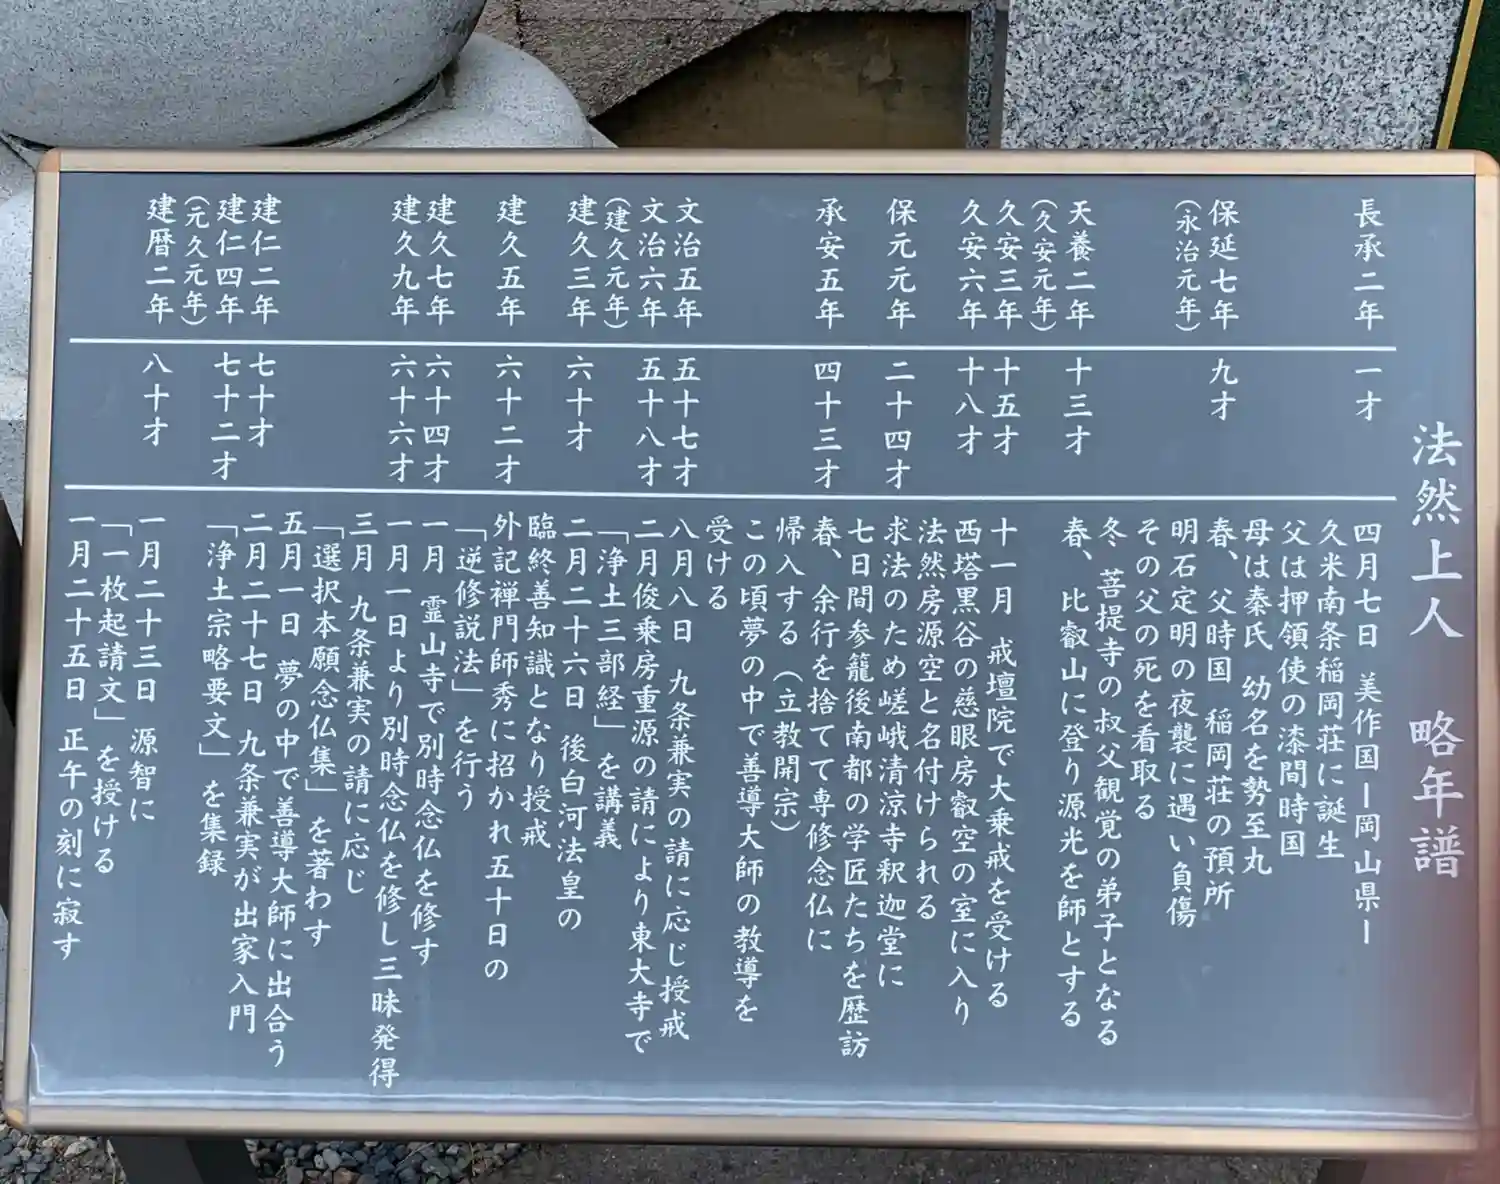 法然上人　略年譜
長承二年　一才　四月七日　美作国ー岡山県ー
久米南条稲岡荘に誕生
父は押領使の漆間時国
母は秦氏　幼名を勢至丸
保延七年　九才　春、父時国　稲岡荘の預所
（永治元年）　明石定明の夜襲に遇い負傷
その父の死を看取る
冬　菩提寺の叔父観覚の弟子となる
天養二年　十三才　春、比叡山に登り源光を師とする
（久安元年）
久安三年　十五才　十一月　戒壇院で大乗戒を受ける
久安六年　十八才　西塔黒谷の慈眼房叡空の室に入り
法然房源空と名付けられる
保元元年　二十四才　求法のため嵯峨清涼寺釈迦堂に
七日間参籠後南都の学匠たちを歴訪
承安五年　四十三才　春、余行を捨てて専修念仏に
帰入する（立教開宗）
この頃夢の中で善導大師の教導を
受ける
文治五年　五十七才　八月八日　九条兼実の請に応じ授戒
文治六年　五十八才　二月俊乗房重源の請により東大寺で
（建久元年）　「浄土三部経」を講義
建久三年　六十才　二月二十六日　後白河法皇の
臨終善知識となり授戒
建久五年　六十二才　外記禅門師秀に招かれ五十日の
「逆修説法」を行う
建久七年　六十四才　一月　霊山寺で別時念仏を修す
建久九年　六十六才　一月一日より別時念仏を修し三昧発得
三月　九条兼実の請に応じ
「選択本願念仏集」を著わす
五月一日　夢の中で善導大師に出合う
建仁二年　七十才　二月二十七日　九条兼実が出家入門
建仁四年　七十二才　「浄土宗略要文」を集録
（元久元年）
建暦二年　八十才　一月二十三日　源智に
「一枚起請文」を授ける
一月二十五日　正午の刻に寂す